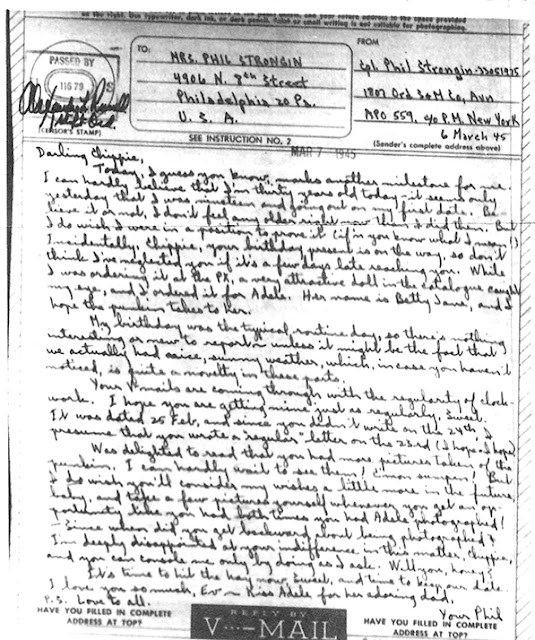 on the right. Use typewriter, dark ink, or dark pencil. Faint or small writing is not suitable for photographing.
PASSED BY
(CENSOR'S STAMP)
TO:
MRS. PHIL STRONGIN
4906 N. 8th Street
Philadelphia 20 Pa.
U. S. A.
SEE INSTRUCTION NO. 2
FROM
Cpl Phil Strongin-33051925
1807 Ord S&M Co, Avn
APO 559, c/o P.M. New York
6 March 45
(Sender's complete address above)
MAR 7 1945
Darling Chippie,
Today, I guess you know, marks another milestone for me.
I can hardly believe that I'm thirty years old today it seems only
yesterday that I was nineteen and going out on our first date. Be-
lieve it or not, I don't feel any older right now than I did then. But
I do wish I were in a position to prove it (if'n you know what I mean!)
Incidentally, Chippie, your birthday present is on the way, so don't
think I've neglected you if it's a few days late reaching you. While
I was ordering it at the PX, a very attractive doll in the catalogue caught
my eye, and I ordered it for Adele. Her name is Betty Jane, and I
hope the punkin takes to her.
My birthday was the typical routine day, so there's nothing
interesting or new to report on unless it might be the fact that
we actually had nice, sunny weather, which, in case you haven't
noticed, is quite a novelty in these parts.
Your V-mails are coming through with the regularity of clock-
work. I hope you are getting mine just as regularly, Sweet.
It was dated 25 Feb, and since you didn't write on the 24th, I
presume that you wrote a "regular" letter on the 23rd (I hope I hope)
Was delighted to read that you had more pictures taken of the
punkin. I can hardly wait to see them! C'mon sumpin'! But
I do wish you'll consider my wishes a little more in the future,
baby, and take a few pictures yourself whenever you get an op-
portunity like you had both times you had Adele photographed!
-Since when did you get backward about being photographed?
I'm deeply disappointed at your indifference in this matter, Chippie,
and you can console me only by doing as I ask. Will you, honey?
It's time to hit the hay now, Sweet, and time to keep our date.
I love you so much, Ev ~ Kiss Adele for her adoring dad.
Yours Phil
P.S. Love to all.
HAVE YOU FILLED IN COMPLETE
ADDRESS AT TOP?
REPLY BY
V···—MAIL
HAVE YOU FILLED IN COMPLETE
ADDRESS AT TOP?